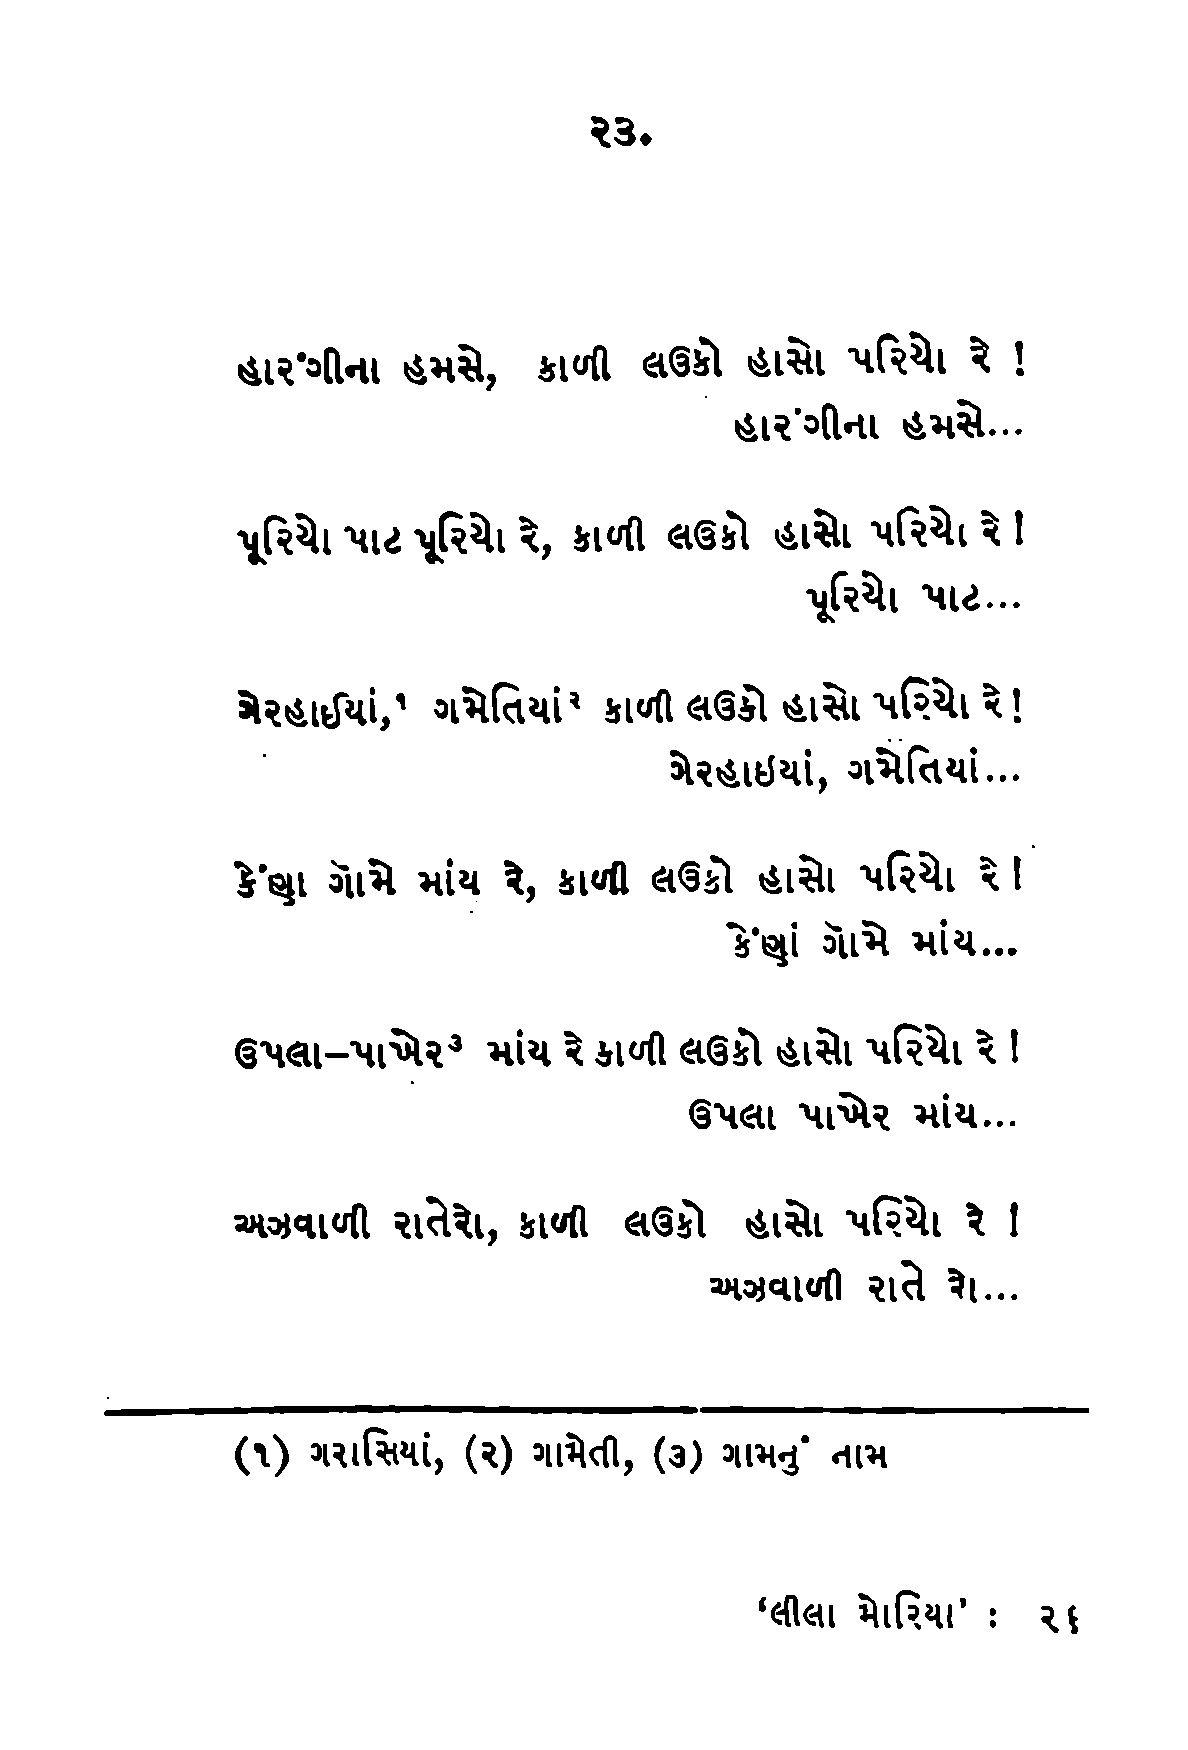 ૨૩.
હારંગીના હમસે, કાળી લઉકો હાસો પરિયો રે !
હારંગીના હમસે...
પૂરિયો પાટ પૂરિયો રે, કાળી લઉકો હાસો પરિયો રે !
પૂરિયો પાટ...
ગેરહાઈયાં,૧ ગમેતિયાં૨ કાળી લઉકો હાસો પરિયો રે !
ગેરહાઇયાં, ગમેતિયાં...
કેંણા ગૅામે માંય રે, કાળી લઉકો હાસો પરિયો રે !
કેંણાં ગૅામે માંય...
ઉપલા–પાખેર૩ માંય રે કાળી લઉકો હાસો પરિયો રે !
ઉપલા પાખેર માંય...
અઝવાળી રાતેરો, કાળી લઉકો હાસો પરિયો રે !
અઝવાળી રાતે રો...
(૧) ગરાસિયાં, (૨) ગામેતી, (૩) ગામનું નામ
‘લીલા મોરિયા’ : ૨૬